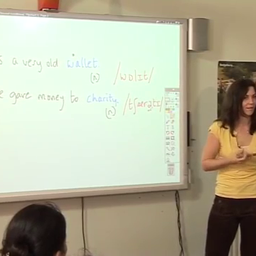 a very old wallet
(n) /wɒlɪt/
gave money to charity
(n) /tʃærətɪ/